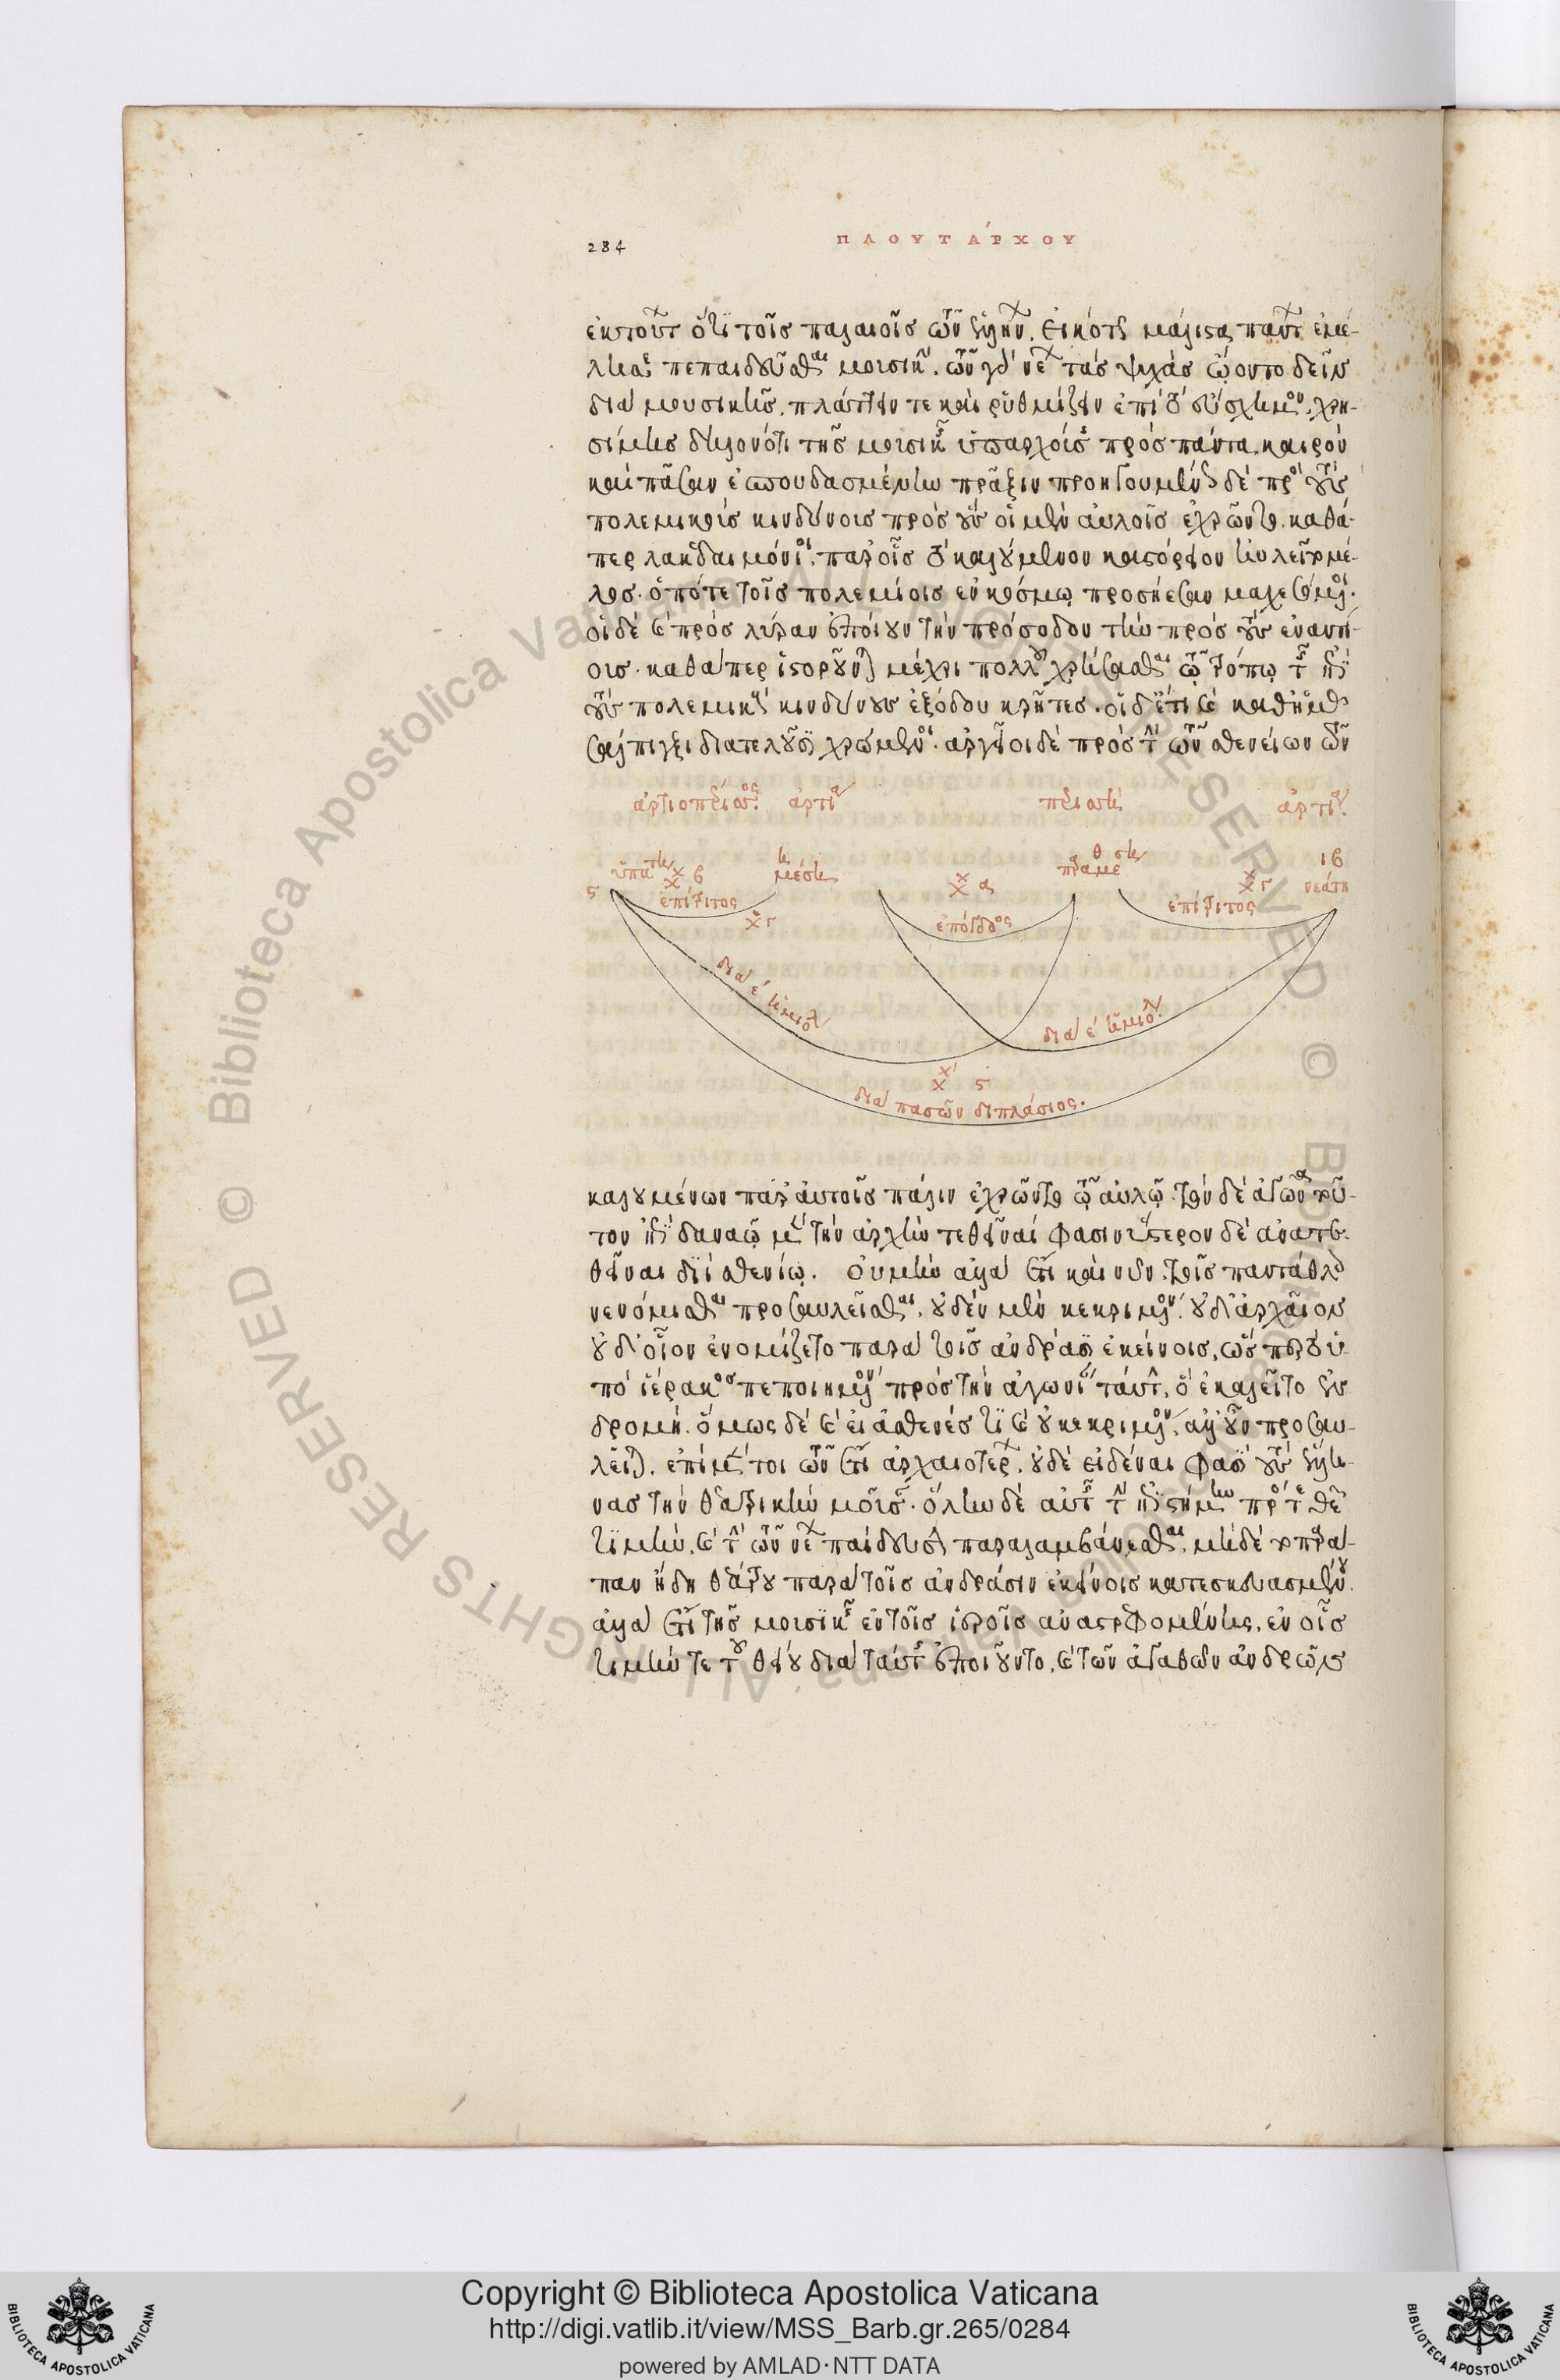 284
ΠΛΟΥΤΆΡΧΟΥ
ἐκ τούτων ὅτι τοῖς παλαιοῖς τῶν ἑλλήνων. εἰκότως μάλιστα πάντων ἐμέ-
λησε πεπαιδεῦσθαι μουσικήν. τῶν γὰρ νέων τὰς ψυχὰς ᾤοντο δεῖν
διὰ μουσικῆς. πλάττειν τε καὶ ῥυθμίζειν ἐπὶ τὸ εὔσχημον. χρη-
σίμης δηλονότι τῆς μουσικῆς ὑπαρχούσης πρὸς πάντα καιρὸν
καὶ πᾶσαν ἐσπουδασμένην πρᾶξιν προηγουμένως δὲ πρὸς τοὺς
πολεμικοὺς κινδύνους πρὸς οὓς οἱ μὲν αὐλοῖς ἐχρῶντο. καθά-
περ λακεδαιμόνιοι. παρ' οἷς τὸ καλούμενον καστόρειον ηὐλεῖτο μέ-
λος. ὁπότε τοῖς πολεμίοις ἐν κόσμῳ προσήεσαν μαχεσόμενοι.
οἱ δὲ καὶ πρὸς λύραν ἐποίουν τὴν πρόσοδον τὴν πρὸς τοὺς ἐναντί-
ους. καθάπερ ἱστοροῦνται μέχρι πολλοῦ χρήσασθαι τῷ τρόπῳ τῆς ἐπὶ
τοὺς πολεμικοὺς κινδύνους ἐξόδου κρῆτες. οἱ δ' ἔτι καὶ καθ' ἡμᾶς
σάλπιγξι διατελοῦσι χρώμενοι. ἀργεῖοι δὲ πρὸς τὴν τῶν σθενείων τῶν
ἀρτιοπέρισσος. ἄρτιος
περισσή
ἄρτιος.
ς ὑπάτη β
ἐπίτριτος
μέση
γ
α
ἐπόγδοος
θ
παραμέση
ἐπίτριτος
γ
ιβ
νεάτη
διὰ ε ἡμιόλιος
διὰ ε ἡμιόλιος
ς
διὰ πασῶν διπλάσιος.
καλουμένων παρ' αὐτοῖς πάλην ἐχρῶντο τῷ αὐλῷ. τὸν δὲ ἀγῶνα τοῦ-
τον ἐπὶ δαναῷ μὲν τὴν ἀρχὴν τεθεῖναί φασιν ὕστερον δὲ ἀνατε-
θεῖναι διὶ σθενίῳ. οὐ μὴν ἀλλὰ ἔτι καὶ νῦν τοῖς πεντάθλοις
νενόμισθαι προσαυλεῖσθαι. οὐδὲν μὲν κεκριμένον. οὐδ' ἀρχαῖον
οὐδ' οἷον ἐνομίζετο παρὰ τοῖς ἀνδράσιν ἐκείνοις. ὥσπερ τὸ ὑ-
πὸ ἱέρακος πεποιημένον πρὸς τὴν ἀγωνίαν ταύτην. ὃ ἐκαλεῖτο ἐν
δρομή. ὅμως δὲ καὶ εἰ ἀσθενές τι καὶ οὐ κεκριμένον. ἀλλ' οὖν προσαυ-
λεῖται. ἐπὶ μέντοι τῶν ἔτι ἀρχαιοτέρων. οὐδὲ εἰδέναι φασὶ τοὺς ἕλλη-
νας τὴν θεατρικὴν μοῦσαν. ὅλην δὲ αὐτοῖς τὴν ἐπιστήμην πρός τε θεῶν
τιμὴν. καὶ τὴν τῶν νέων παίδευσιν παραλαμβάνεσθαι. μηδὲ τοπαρά-
παν ἤδη θεάτρου παρὰ τοῖς ἀνδράσιν ἐκείνοις κατεσκευασμένου.
ἀλλὰ ἔτι τῆς μουσικῆς ἐν τοῖς ἱεροῖς ἀναστρεφομένης. ἐν οἷς
τιμήν τε τοῦ θείου διὰ ταύτης ἐποιοῦντο. καὶ τῶν ἀγαθῶν ἀνδρῶν
Copyright © Biblioteca Apostolica Vaticana
http://digi.vatlib.it/view/MSS_Barb.gr.265/0284
powered by AMLAD·NTT DATA